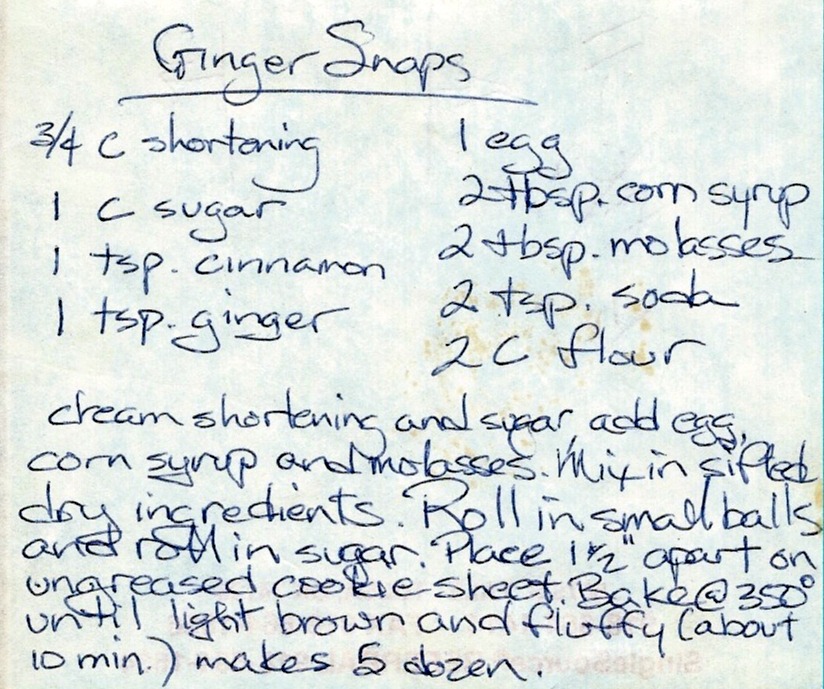 Ginger Snaps
3/4 C shortening
1 C sugar
1 tsp. cinnamon
1 tsp. ginger
1 egg
2 tbsp. corn syrup
2 tbsp. molasses
2 tsp. soda
2 C flour
cream shortening and sugar, add egg,
corn syrup and molasses. Mix in sifted
dry ingredients. Roll in small balls
and roll in sugar. Place 1 1/2" apart on
ungreased cookie sheet. Bake @ 350°
until light brown and fluffy (about
10 min.) makes 5 dozen.